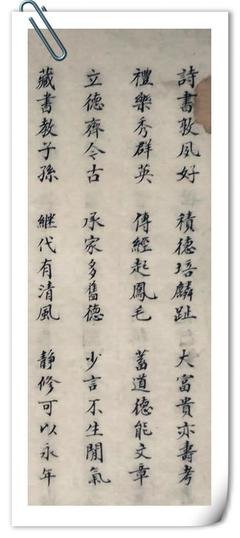 詩書敦夙好 積德培麟趾 大富貴亦壽考
禮樂秀群英 傳經起鳳毛 蓄道德能文章
立德齊今古 承家多舊德 少言不生閒氣
藏書教子孫 継代有清風 靜修可以永年